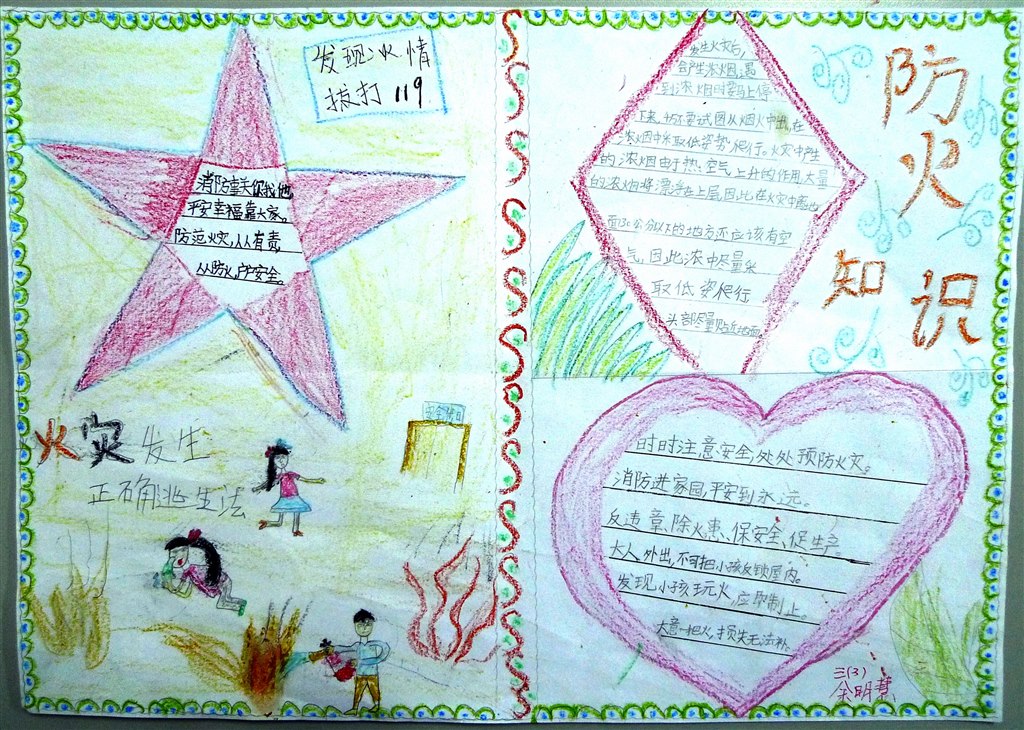 发现火情
拔打119
消防事关你我他
平安幸福靠大家。
防范火灾,人人有责
人人防火,户户安全。
火灾发生
正确逃生法
安全出口
防火
知识
发生火灾后,
会产生浓烟,遇
到浓烟时要马上停
下来,切不要试图从烟火中出,在
浓烟中采取低姿势爬行。火灾中产生
的浓烟由于热空气上升的作用,大量
的浓烟将漂浮在上层,因此在火灾中离地
面30公分以下的地方还应该有空
气,因此浓中尽量采
取低姿爬行
头部尽量贴近地面。
时时注意安全,处处预防火灾。
消防进家园,平安到永远。
反违章、除火患、保安全、促生产。
大人外出,不可把小孩反锁屋内。
发现小孩玩火,应即制止。
大意一把火,损失无法补。
三(3)
余明慧